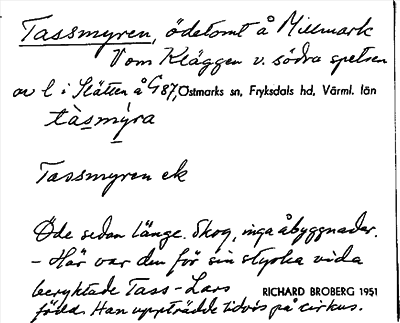 Tassmyren, ödetomt å Millmark
V om Kläggen v. södra spetsen
av l i Slätten å G 87, Östmarks sn, Fryksdals hd, Värml. län
tàsmýra
Tassmyren ek
Öde sedan länge. Skog, inga åbyggnader.
- Här var den för sin styrka vida
beryktade Tass-Lars RICHARD BROBERG 1951
född. Han uppträdde tidvis på cirkus.